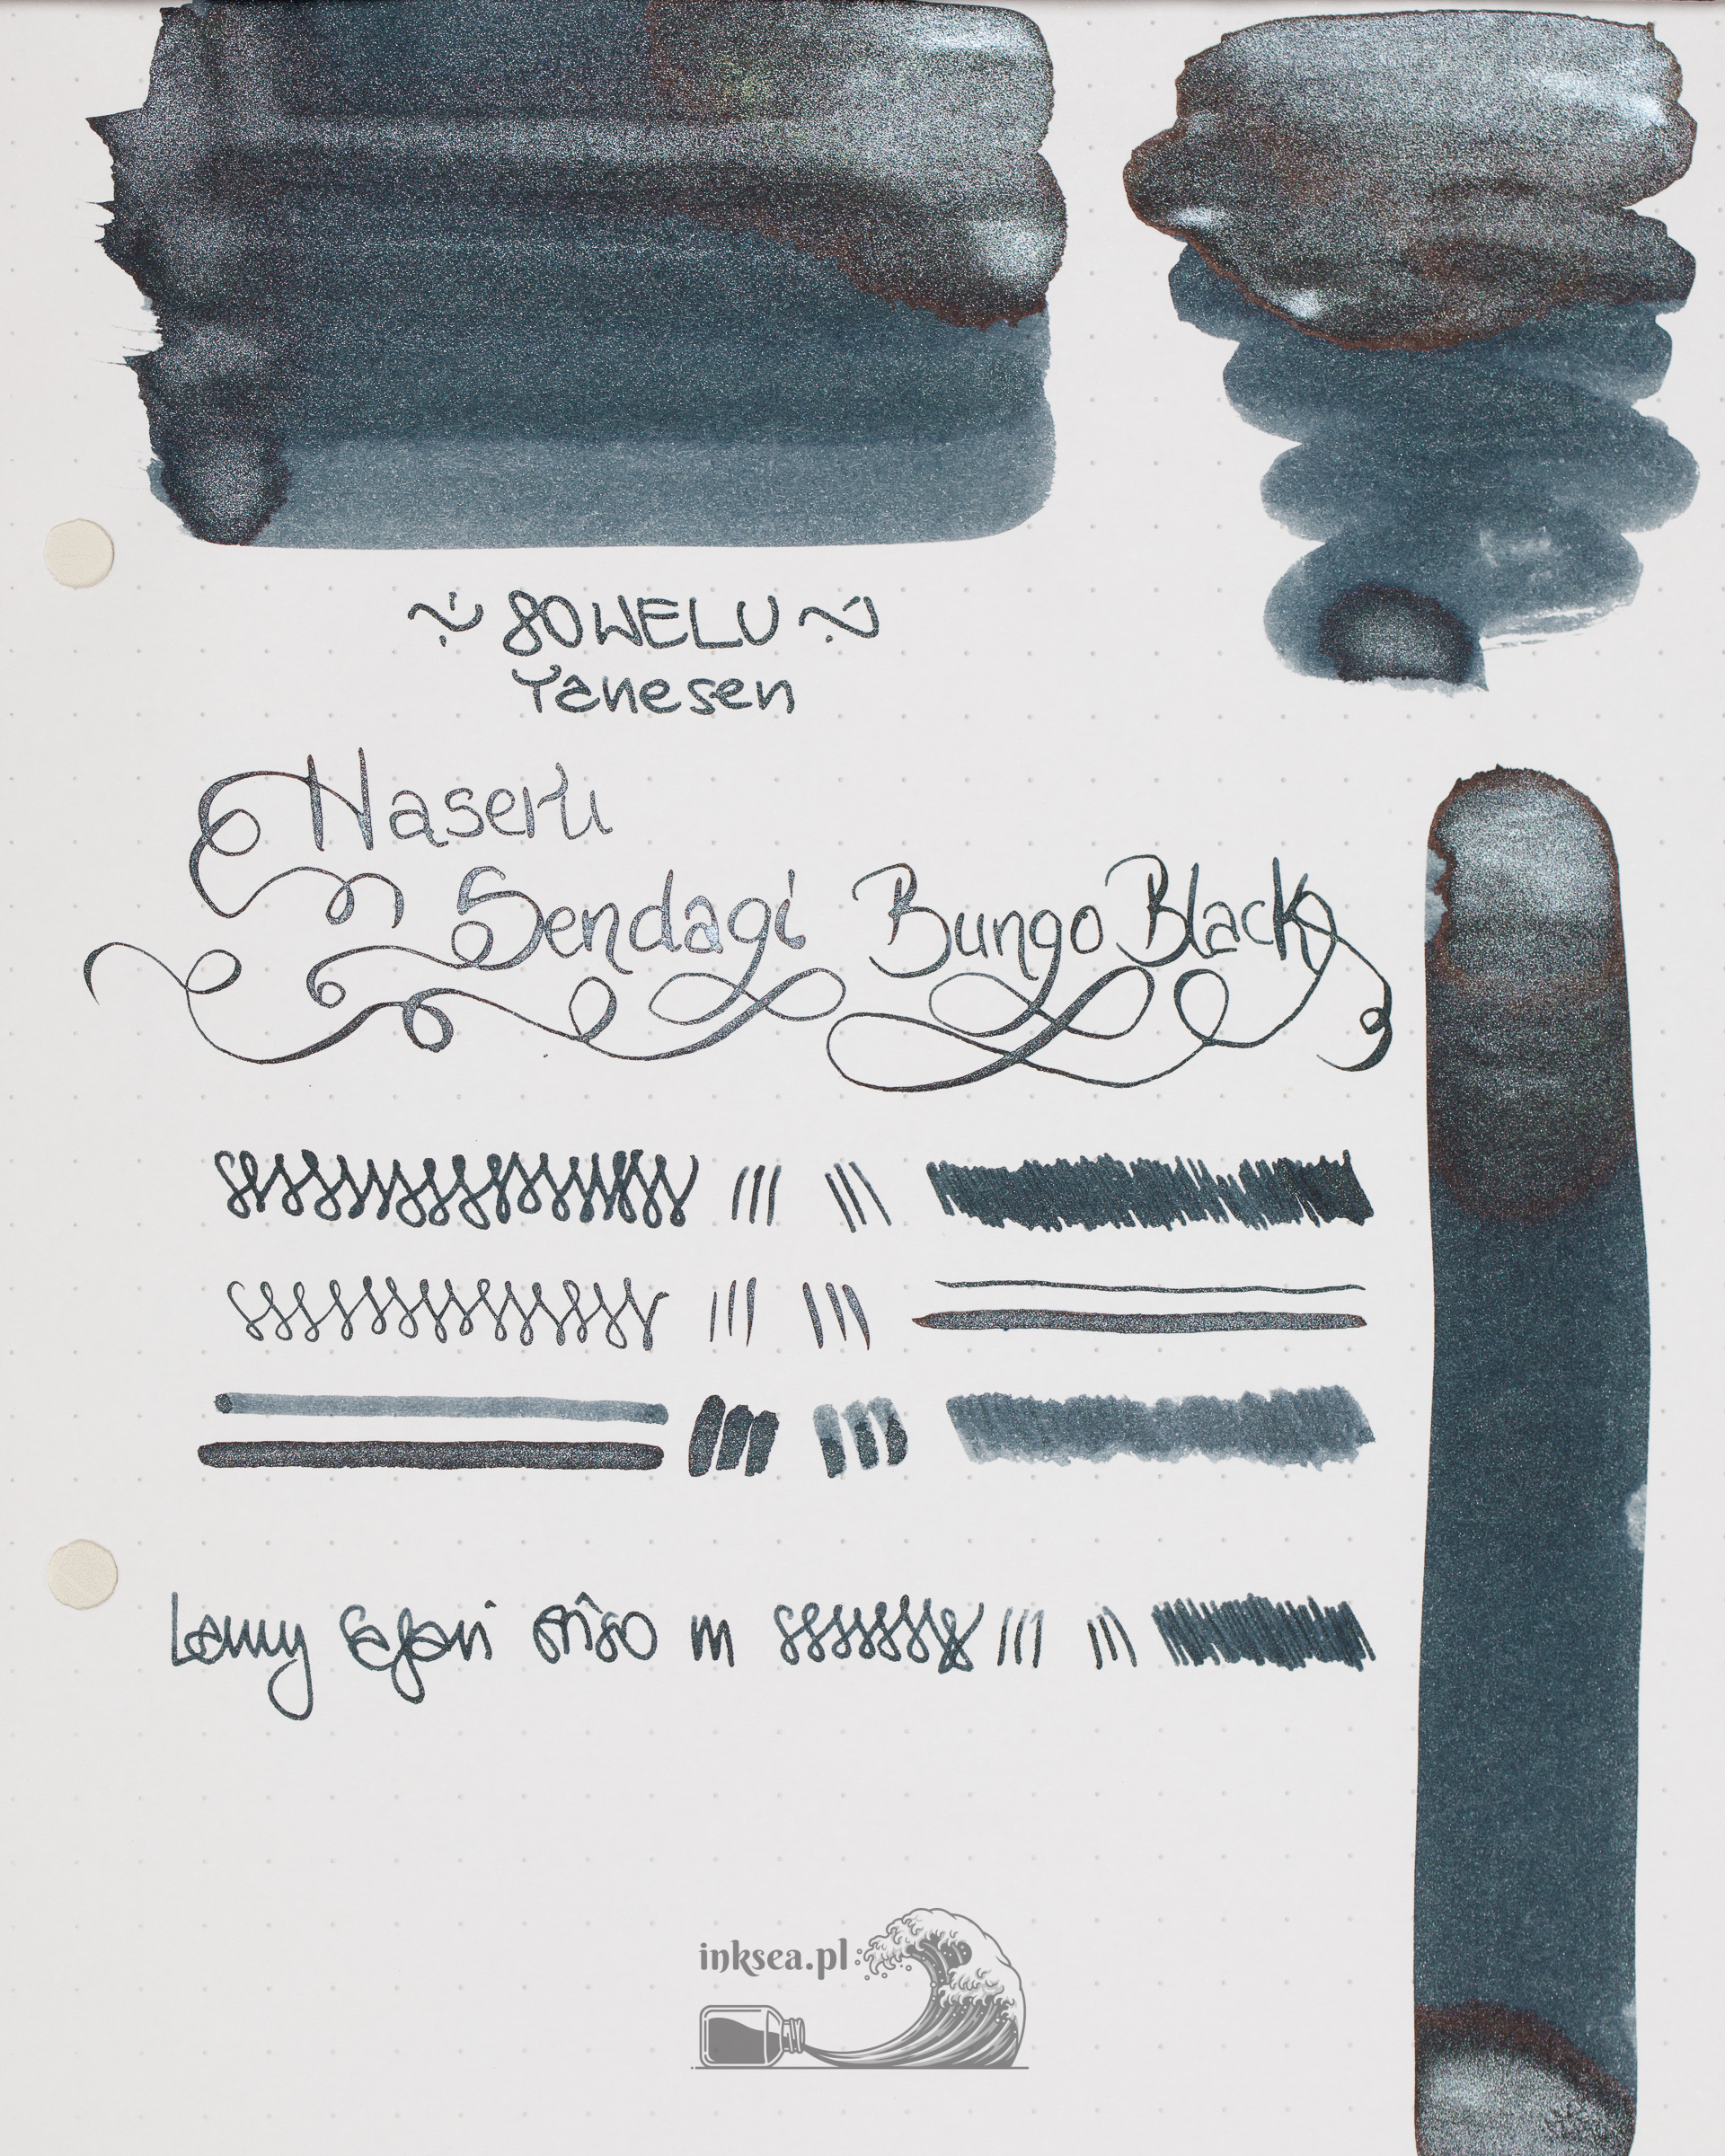 ~ SOWELU ~
Yanesen
Haseru
Sendagi Bungo Black
Lamy Safari m
inksea.pl